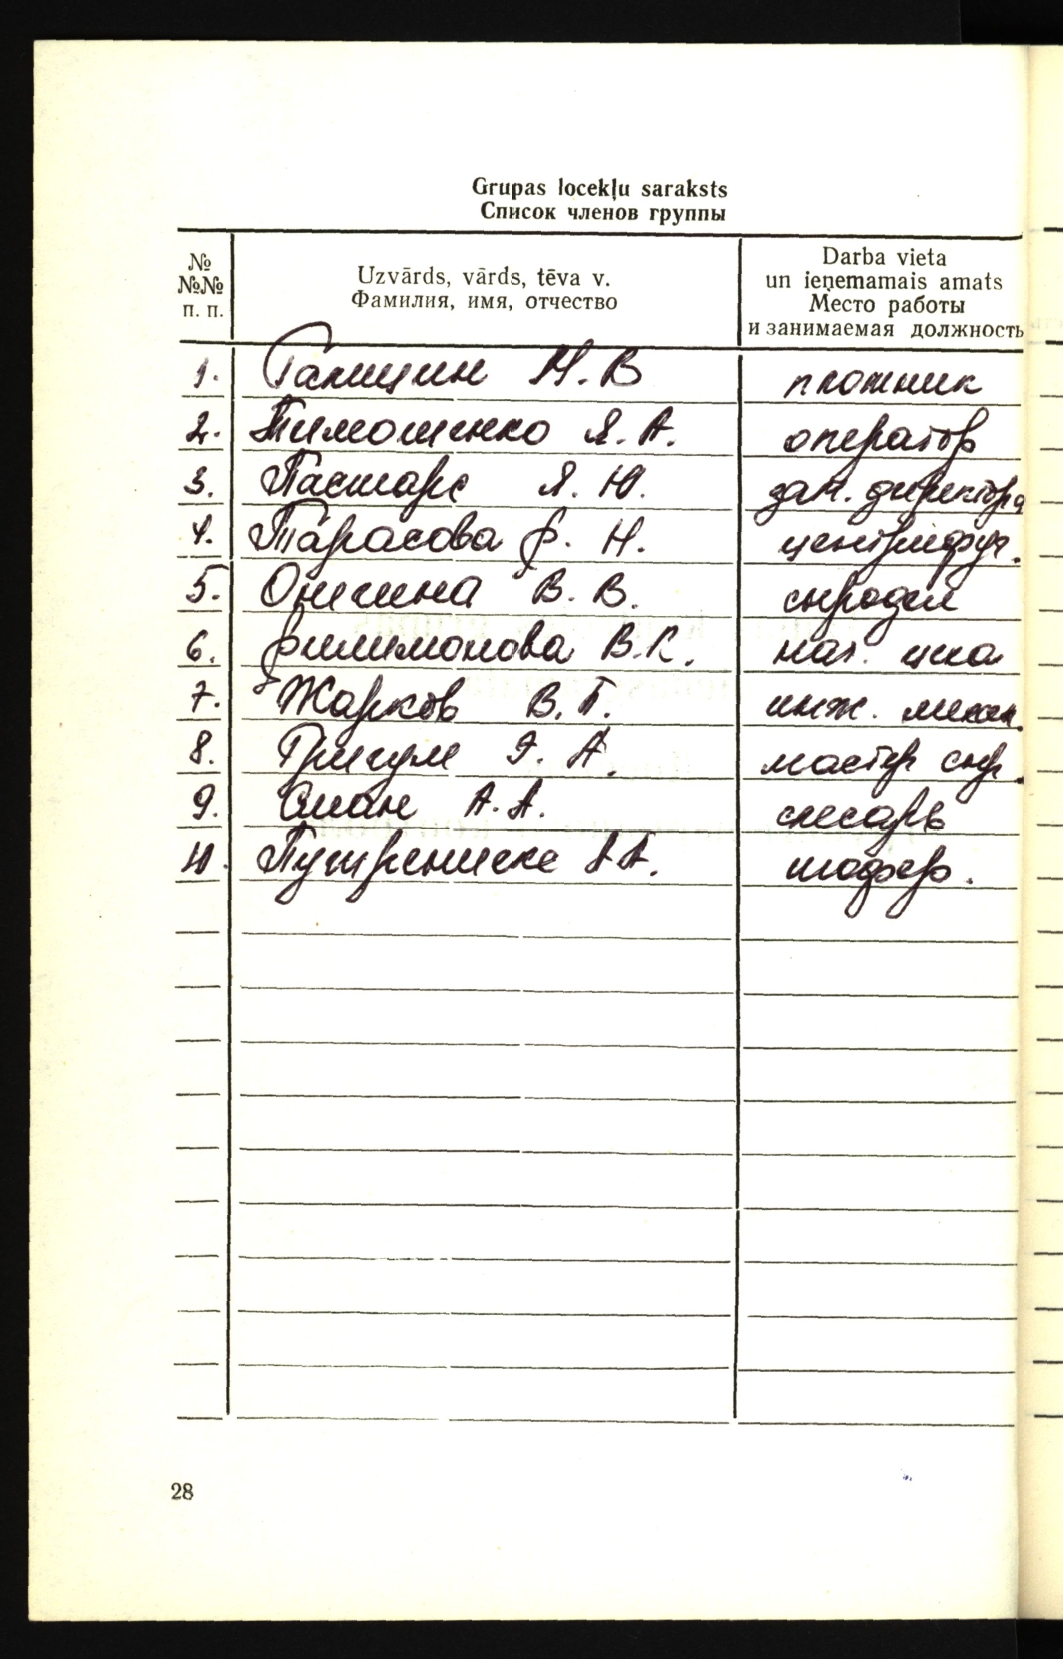 Grupas locekļu saraksts
Список членов группы
№
№№
п. п.
Uzvārds, vārds, tēva v.
Фамилия, имя, отчество
Darba vieta
un ieņemamais amats
Место работы
и занимаемая должность
1. Галицин Н. В плотник
2. Тимошенко Я. А. оператор
3. Пастарс Я. Ю. зам. директора
4. Тарасова Ф. Н. центрифуг.
5. Онисина В. В. сыродел
6. Филимонова В. К. нач. цеха
7. Жарков В. Г. инж. механ.
8. Григуле Э. А. мастер сыр.
9. А. А. слесарь
10. шофер.
28